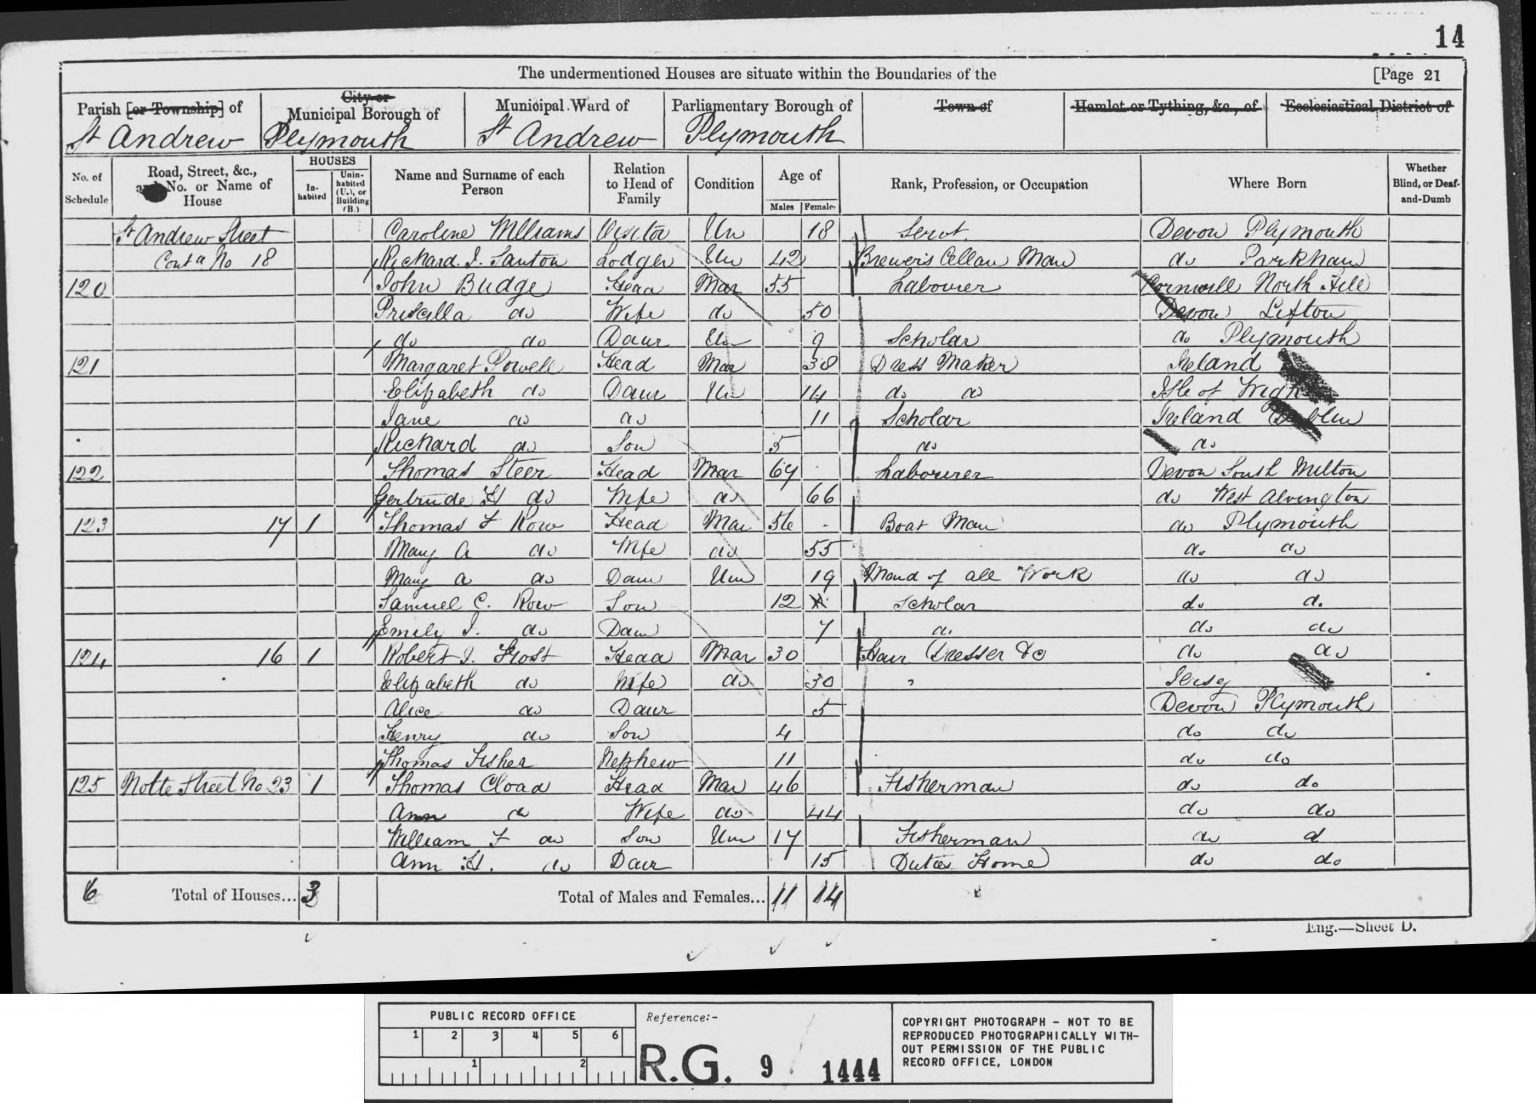 14
The undermentioned Houses are situate within the Boundaries of the [Page 21
Parish [or Township] of City or Municipal Borough of Municipal Ward of Parliamentary Borough of Town of Hamlet or Tything, &c., of Ecclesiastical District of
St Andrew Plymouth St Andrew Plymouth
No. of Schedule Road, Street, &c., and No. or Name of House HOUSES In-habited Unin-habited (U.), or Building (B.) Name and Surname of each Person Relation to Head of Family Condition Age of Males Females Rank, Profession, or Occupation Where Born Whether Blind, or Deaf-and-Dumb
St Andrew Street Caroline Williams Visitor Un 18 Servt Devon Plymouth
Contd No 18 Richard J. Santon Lodger Un 42 Brewer's Cellar Man do Parkham
120 John Budge Head Mar 55 Labourer Cornwall North Hill
Priscilla do Wife do 50 Devon Lifton
do do Daur Un 9 Scholar do Plymouth
121 Margaret Powell Head Mar 38 Dress Maker Ireland
Elizabeth do Daur Un 14 do do Isle of Wight
Jane do do 11 Scholar Ireland Dublin
Richard do Son 5 do do
122 Thomas Steer Head Mar 69 Labourer Devon South Milton
Gertrude H do Wife do 66 do West Alvington
123 17 1 Thomas F Row Head Mar 56 Boat Man do Plymouth
Mary A do Wife do 55 do do
Mary A do Daur Un 19 Maid of all Work do do
Samuel C. Row Son 12 Scholar do do
Emily J. do Daur 7 do do do
124 16 1 Robert J. Frost Head Mar 30 Hair Dresser &c do do
Elizabeth do Wife do 30 Jersey
Alice do Daur 5 Devon Plymouth
Henry do Son 4 do do
Thomas Fisher Nephew 11 do do
125 Notte Street No 23 1 Thomas Cload Head Mar 46 Fisherman do do
Ann do Wife do 44 do do
William F do Son Un 17 Fisherman do d
Ann H. do Daur 15 Duties Home do do
6 Total of Houses... 3 Total of Males and Females... 11 14
Eng.—Sheet D.
PUBLIC RECORD OFFICE Reference:-
1 2 3 4 5 6
1 2
R.G. 9 1444
COPYRIGHT PHOTOGRAPH - NOT TO BE
REPRODUCED PHOTOGRAPHICALLY WITH-
OUT PERMISSION OF THE PUBLIC
RECORD OFFICE, LONDON